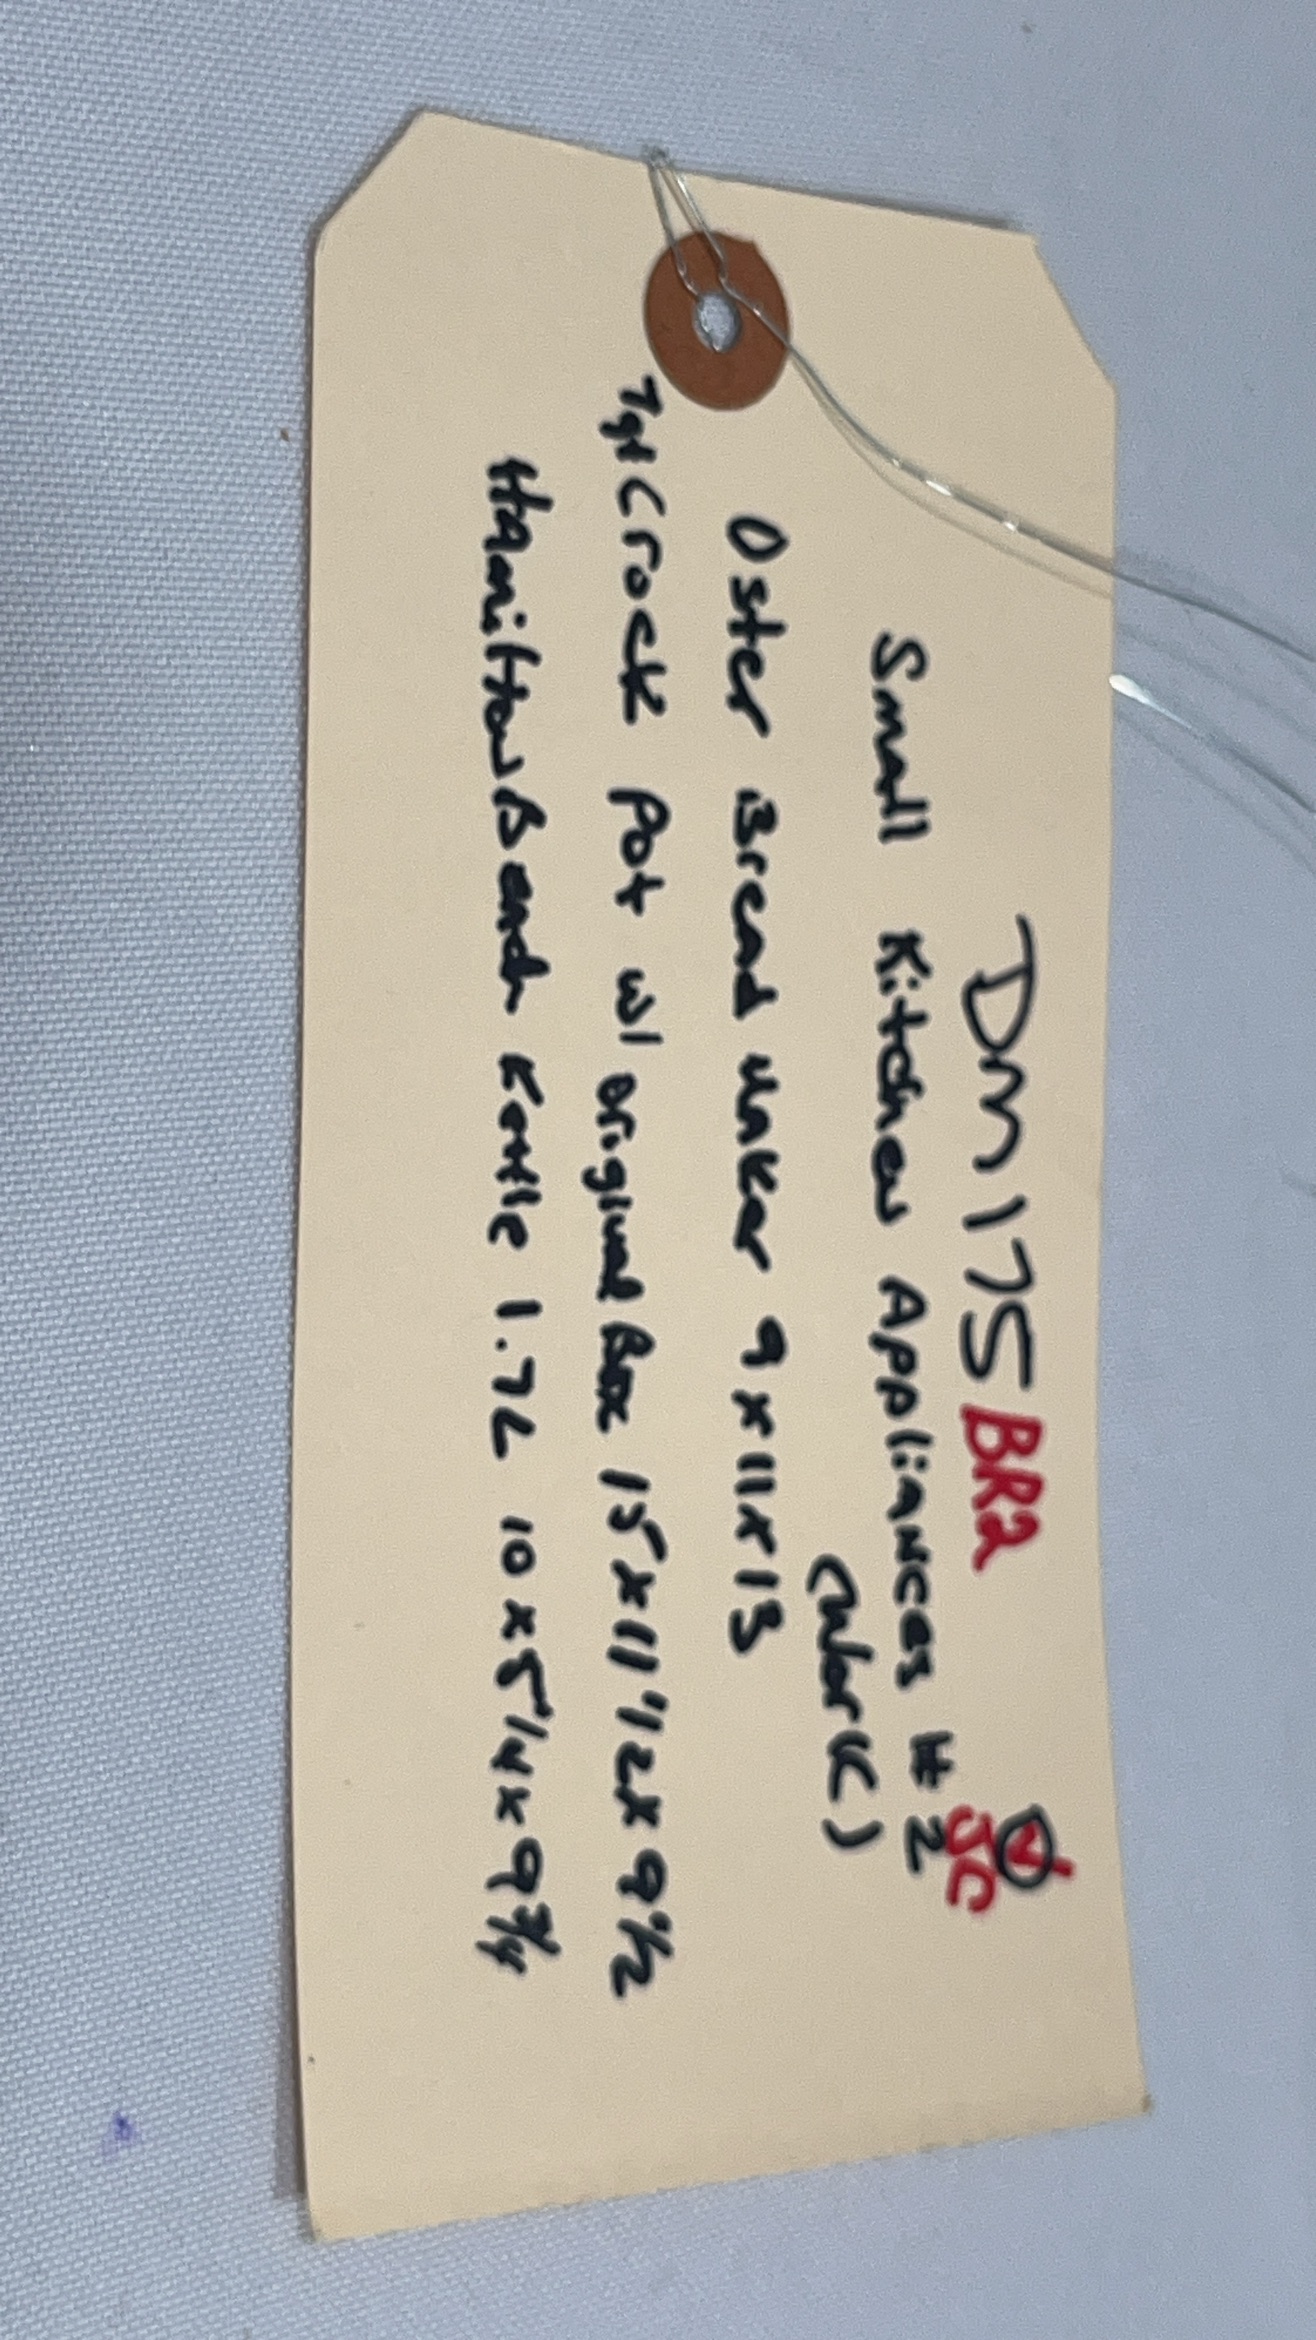 DM175 BR2
JC
Small Kitchen Appliances #2
(Work)
Oster Bread Maker 9x11x13
7qt Crock Pot w/ Original Box 15x11 1/2x9 1/2
Hamilton Beach Kettle 1.7L 10x5 1/4x9 3/4